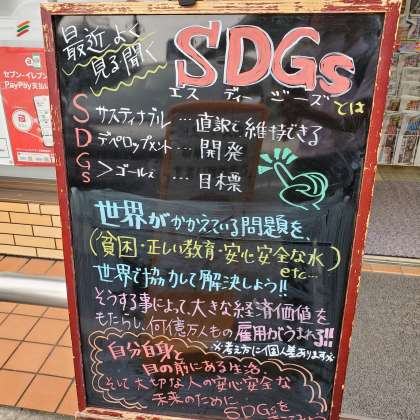 最近よく
見る聞く
SDGs
エス ディー ジーズ とは
S サスティナブル…直訳で維持できる
D デベロップメント…開発
Gs >ゴールズ…目標
世界がかかえている問題を、
(貧困・正しい教育・安心安全な水)
etc…
世界で協力して解決しよう!!
そうする事によって、大きな経済価値を
もたらし、何億万人もの雇用がうまれる!!
※考え方に個人差あります※
自分自身と
目の前にある生活、
そして大切な人の安心安全な
未来のために
SDGsを
セブン-イレブン
PayPay支払